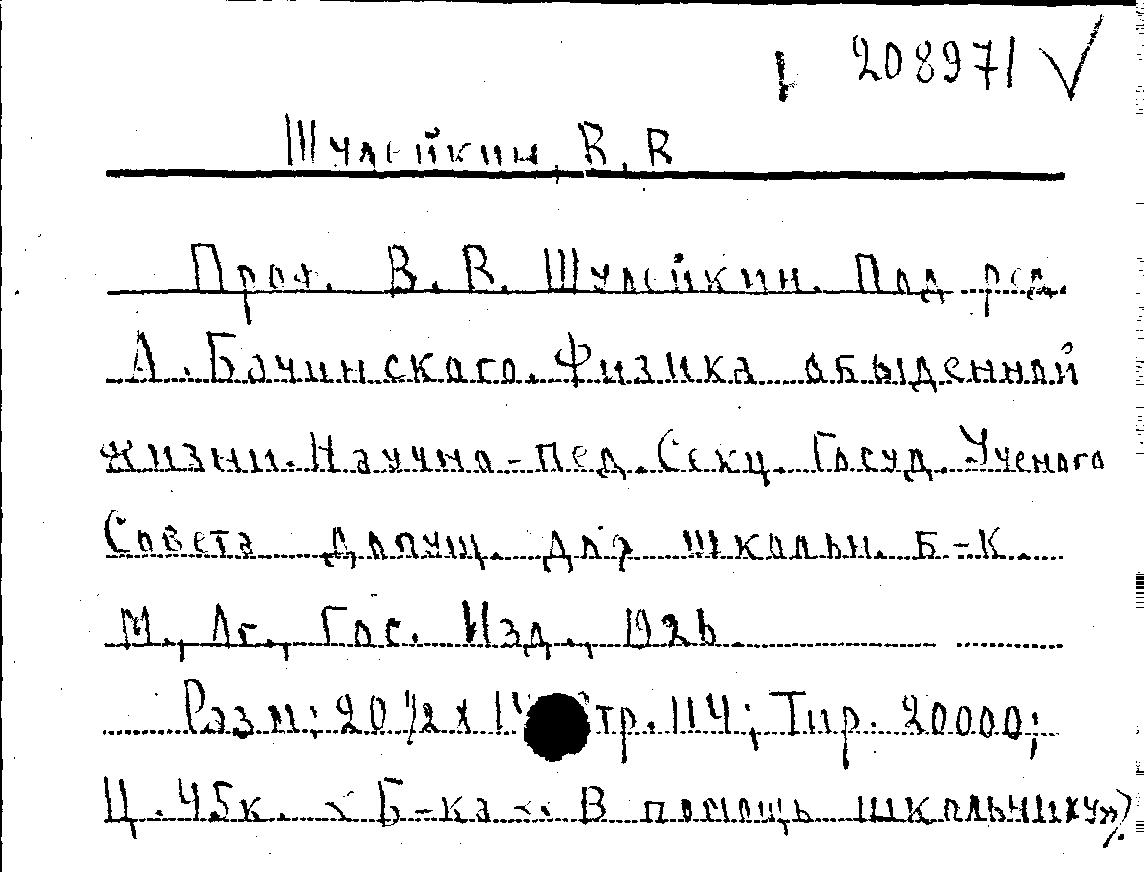 208971
Шулейкин, В. В
Проф. В. В. Шулейкин. Под ред.
А. Бачинского. Физика обыденной
жизни. Научно-пед. Секц. Госуд. Ученого
Совета допущ. для школьн. Б-к.
М., Лг., Гос. Изд., 1926
Разм: 20 1/2 х 14 Стр. 114; Тир. 20000;
Ц. 45к. < Б-ка << В помощь школьнику»).